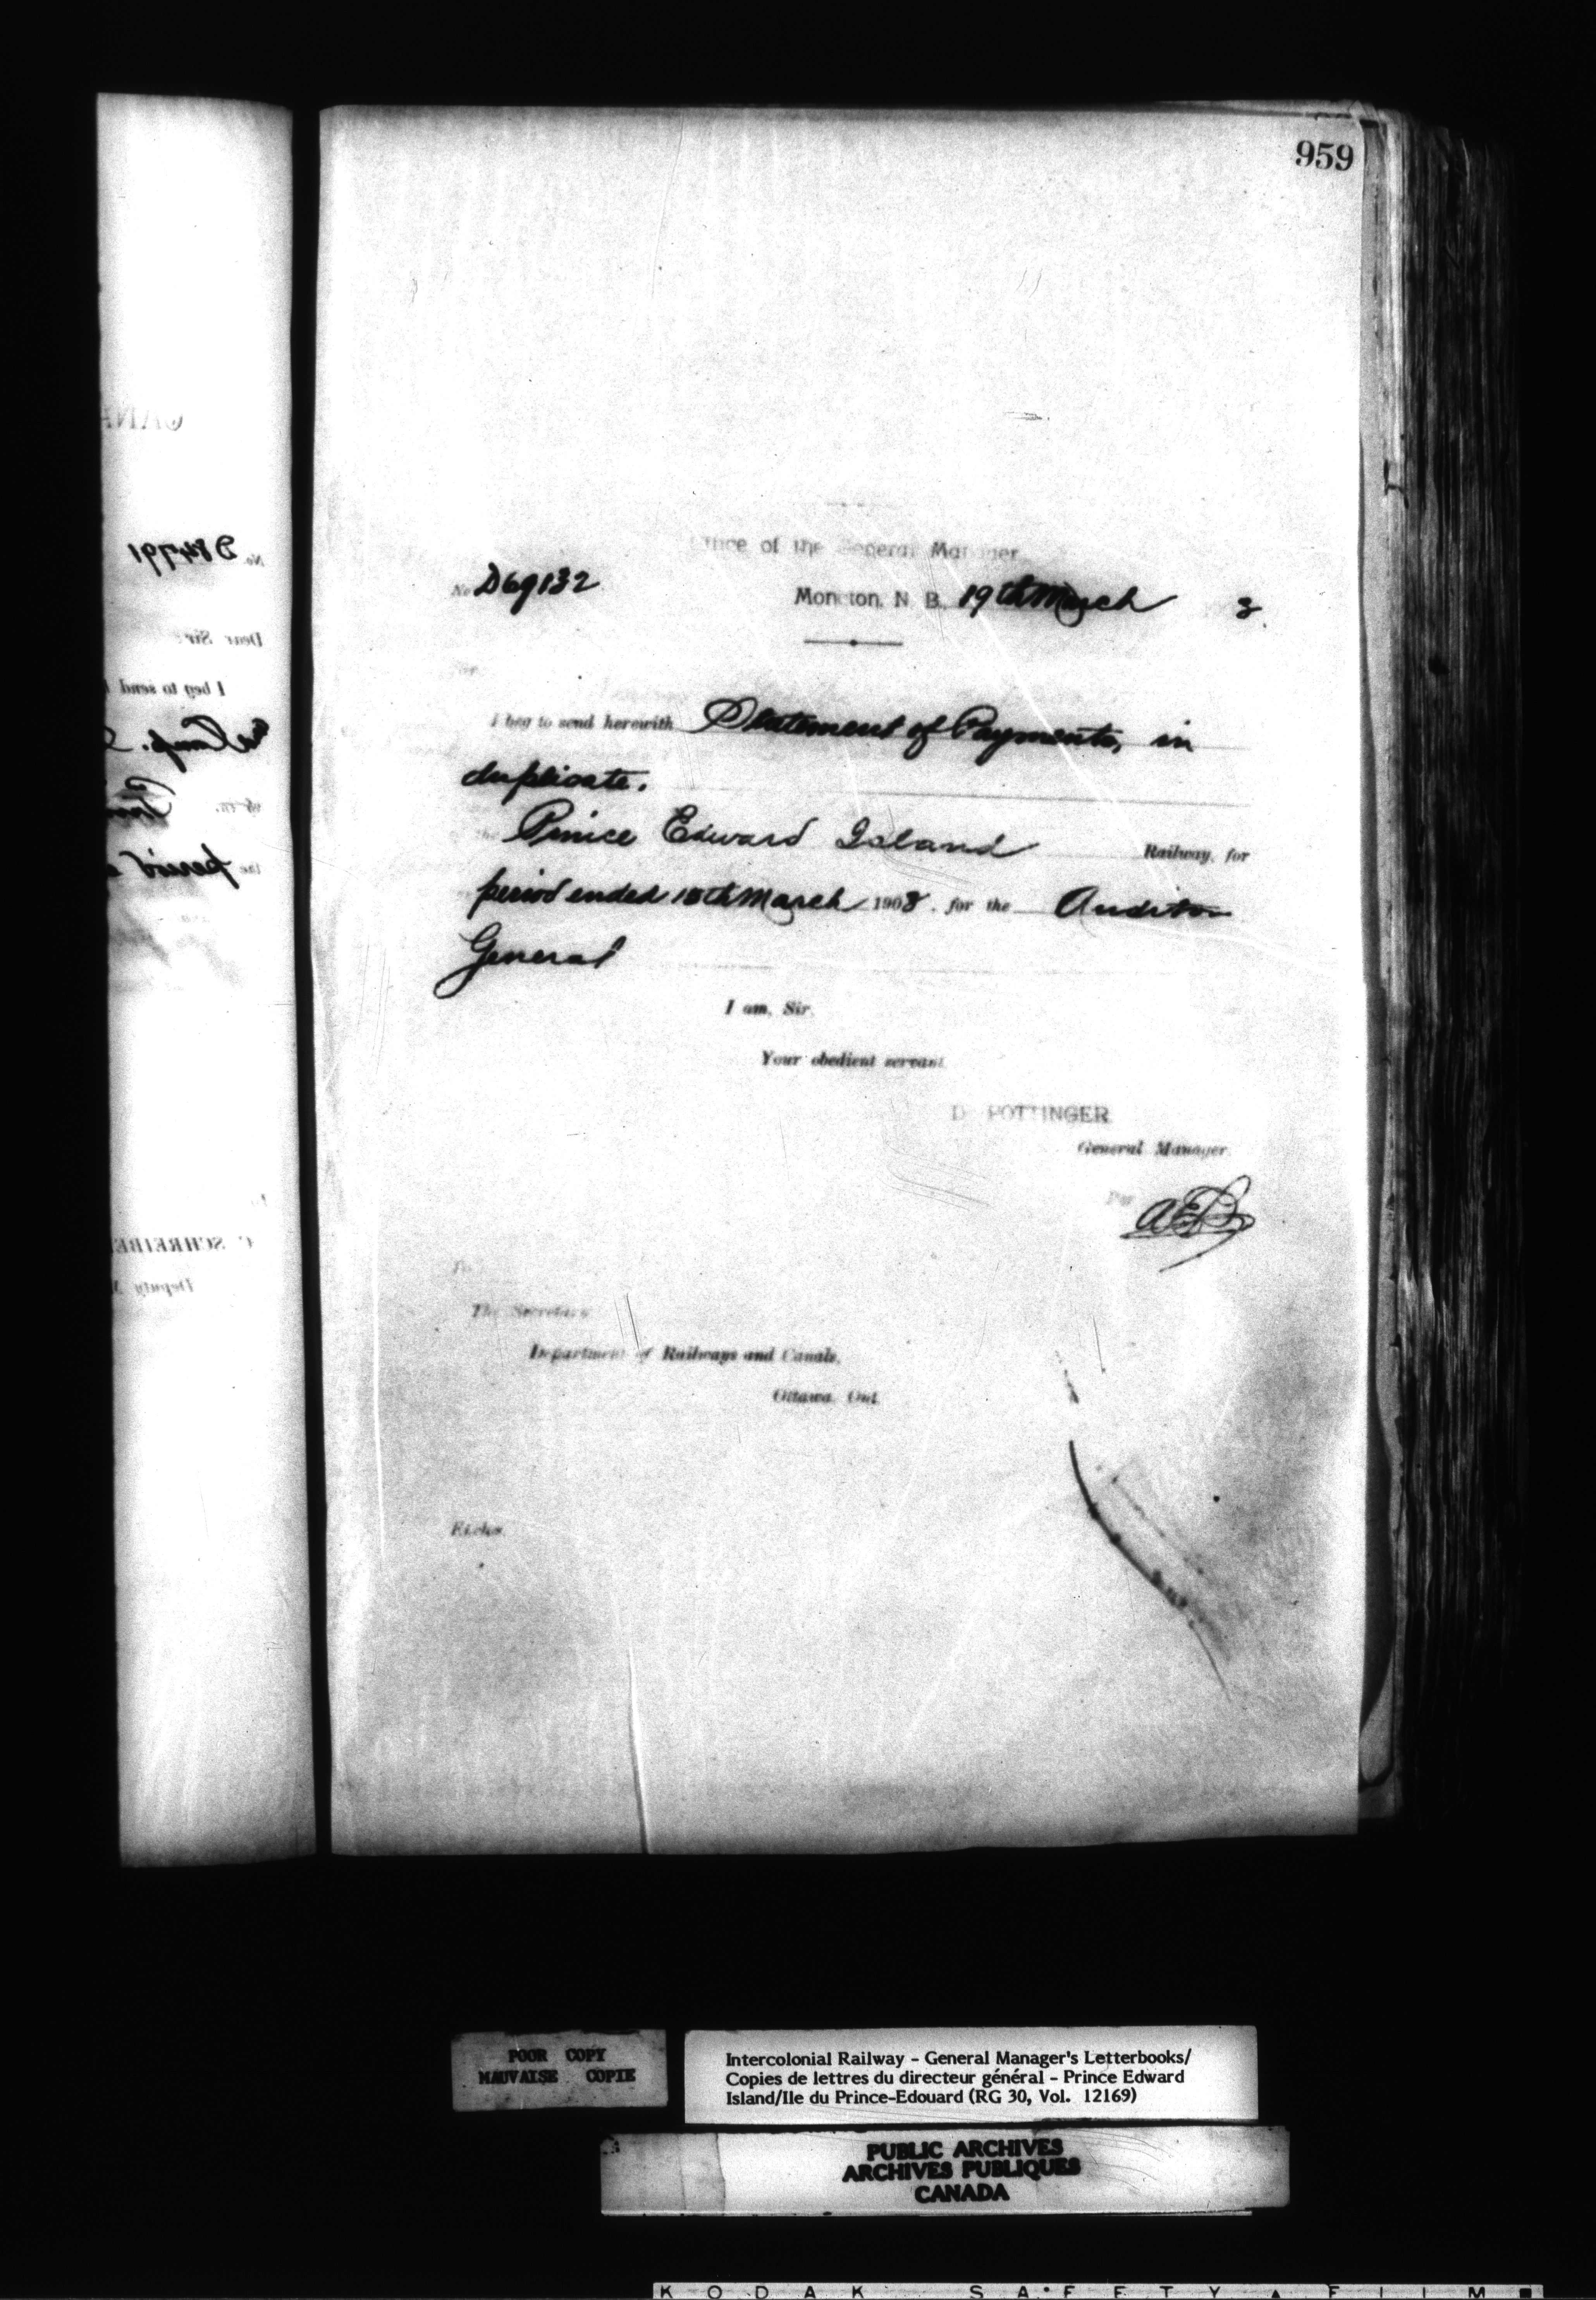 959
Office of the General Manager
No. D69132
Moncton, N. B., 19th March 8.
Sir
I beg to send herewith Statement of Payments, in
duplicate.
the Prince Edward Island Railway, for
period ended 15th March 1908, for the Auditor
General
I am, Sir,
Your obedient servant
D. POTTINGER
General Manager.
Per
The Secretary
Department of Railways and Canals,
Ottawa, Ont.
Encls.
CANA
No. D84791
Dear Sir:
I beg to send
period
C. SCHREIBE
Deputy M
POOR COPY
MAUVAISE COPIE
Intercolonial Railway - General Manager's Letterbooks/
Copies de lettres du directeur général - Prince Edward
Island/Ile du Prince-Edouard (RG 30, Vol. 12169)
PUBLIC ARCHIVES
ARCHIVES PUBLIQUES
CANADA
KODAK SAFETY FILM